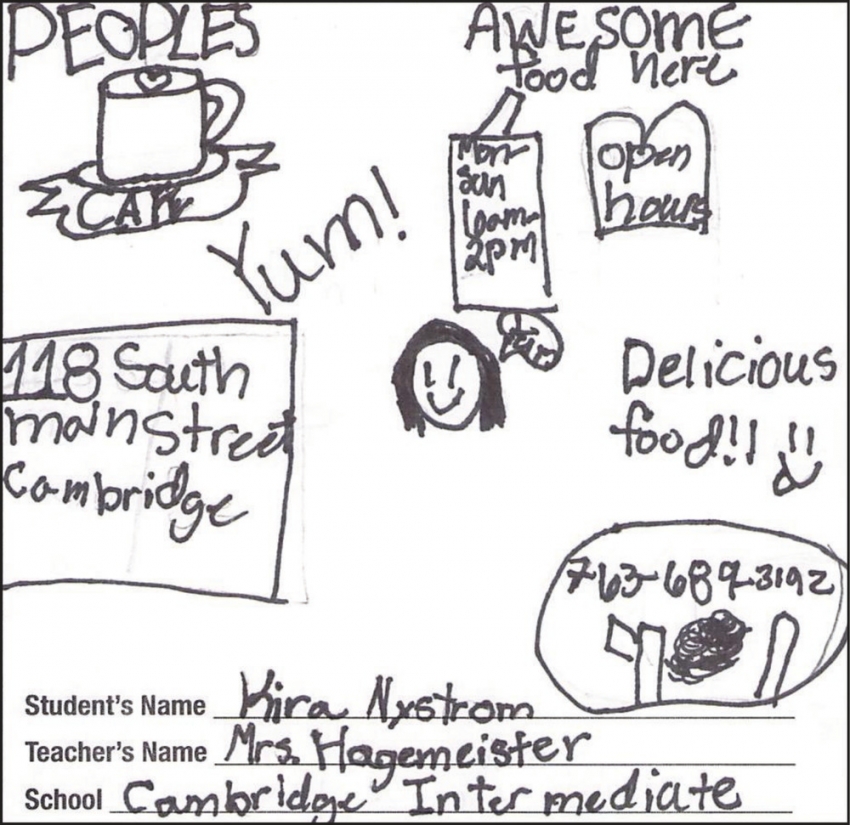 PEOPLES
CAFe
AWESOME
food here
Mon-
Sun
2pm
open
hours
Yum!
Yum
118 South
main Street
Cambridge
Delicious
food!!
763-689-3192
Student's Name Kira Nystrom
Teacher's Name Mrs. Hagemeister
School Cambridge Intermediate